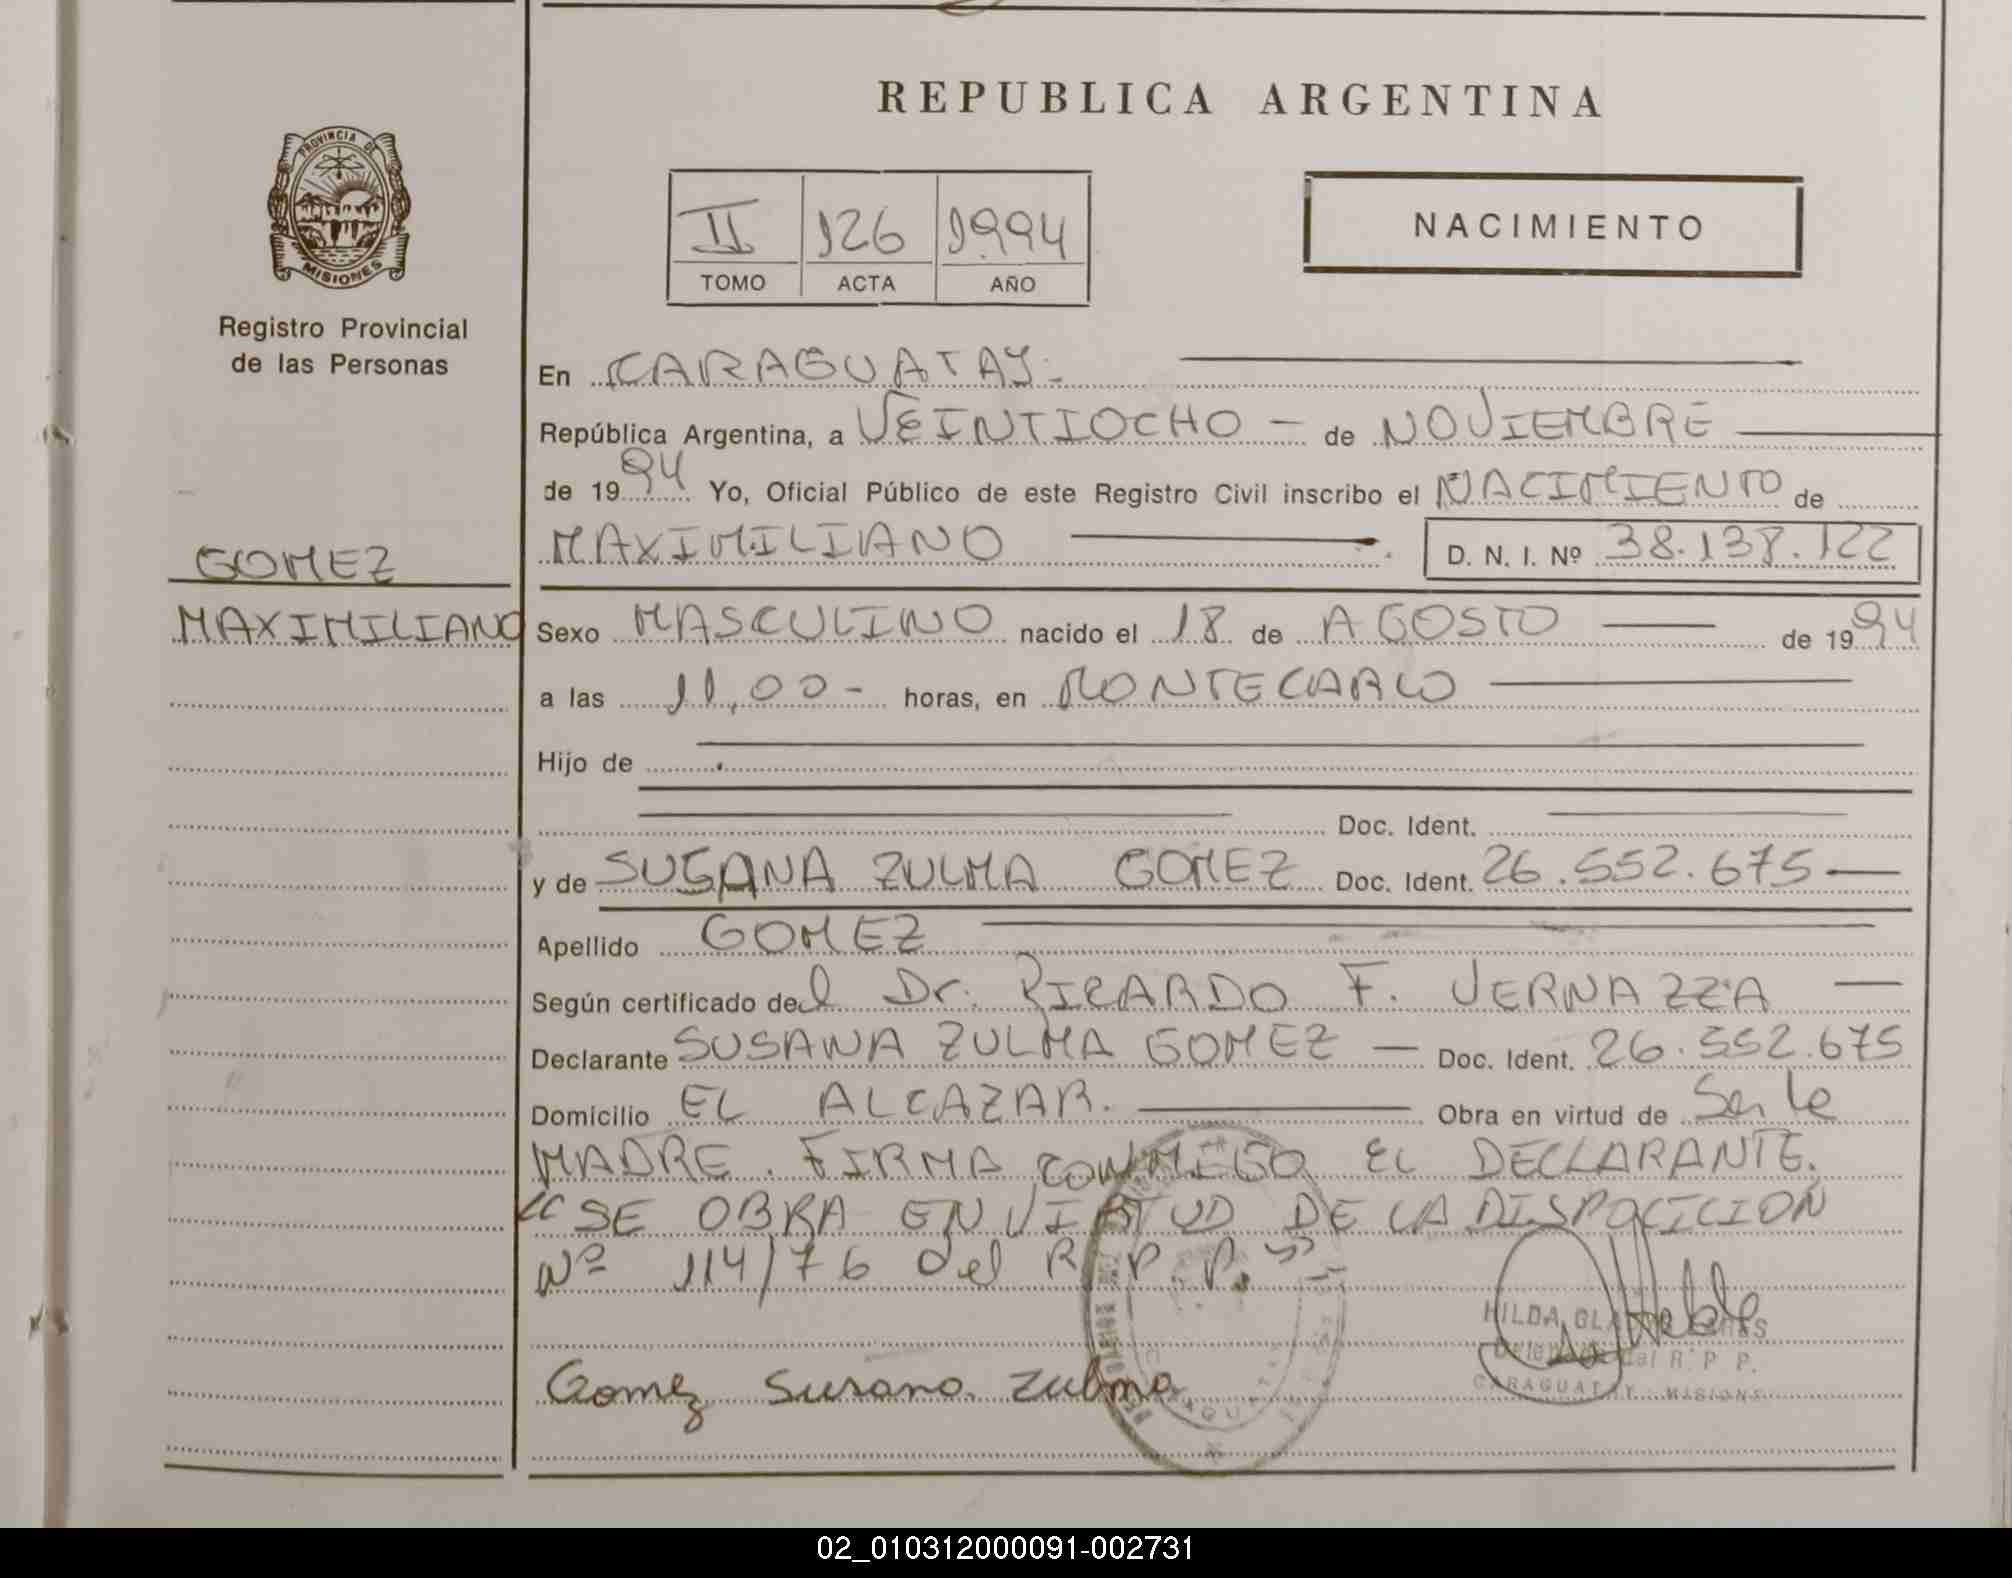 REPUBLICA ARGENTINA
PROVINCIA DE
MISIONES
Registro Provincial
de las Personas
II 126 1994
TOMO ACTA AÑO
NACIMIENTO
En CARAGUATAY.
República Argentina, a VEINTIOCHO - de NOVIEMBRE
de 1994 Yo, Oficial Público de este Registro Civil inscribo el NACIMIENTO de
MAXIMILIANO D. N. I. Nº 38.138.122
GOMEZ
MAXIMILIANO
Sexo MASCULINO nacido el 18 de AGOSTO de 1994
a las 11,00- horas, en MONTECARLO
Hijo de
Doc. Ident.
y de SUSANA ZULMA GOMEZ Doc. Ident. 26.552.675
Apellido GOMEZ
Según certificado del Dr. RICARDO F. VERNAZZA
Declarante SUSANA ZULMA GOMEZ Doc. Ident. 26.552.675
Domicilio EL ALCAZAR. Obra en virtud de Ser la
MADRE. FIRMA CONMIGO EL DECLARANTE.
"SE OBRA EN VIRTUD DE LA DISPOCICION
Nº 114/76 del R. P. P."
HILDA
del R. P. P.
CARAGUATAY - MISIONES
Gomez Susana Zulma
02_010312000091-002731